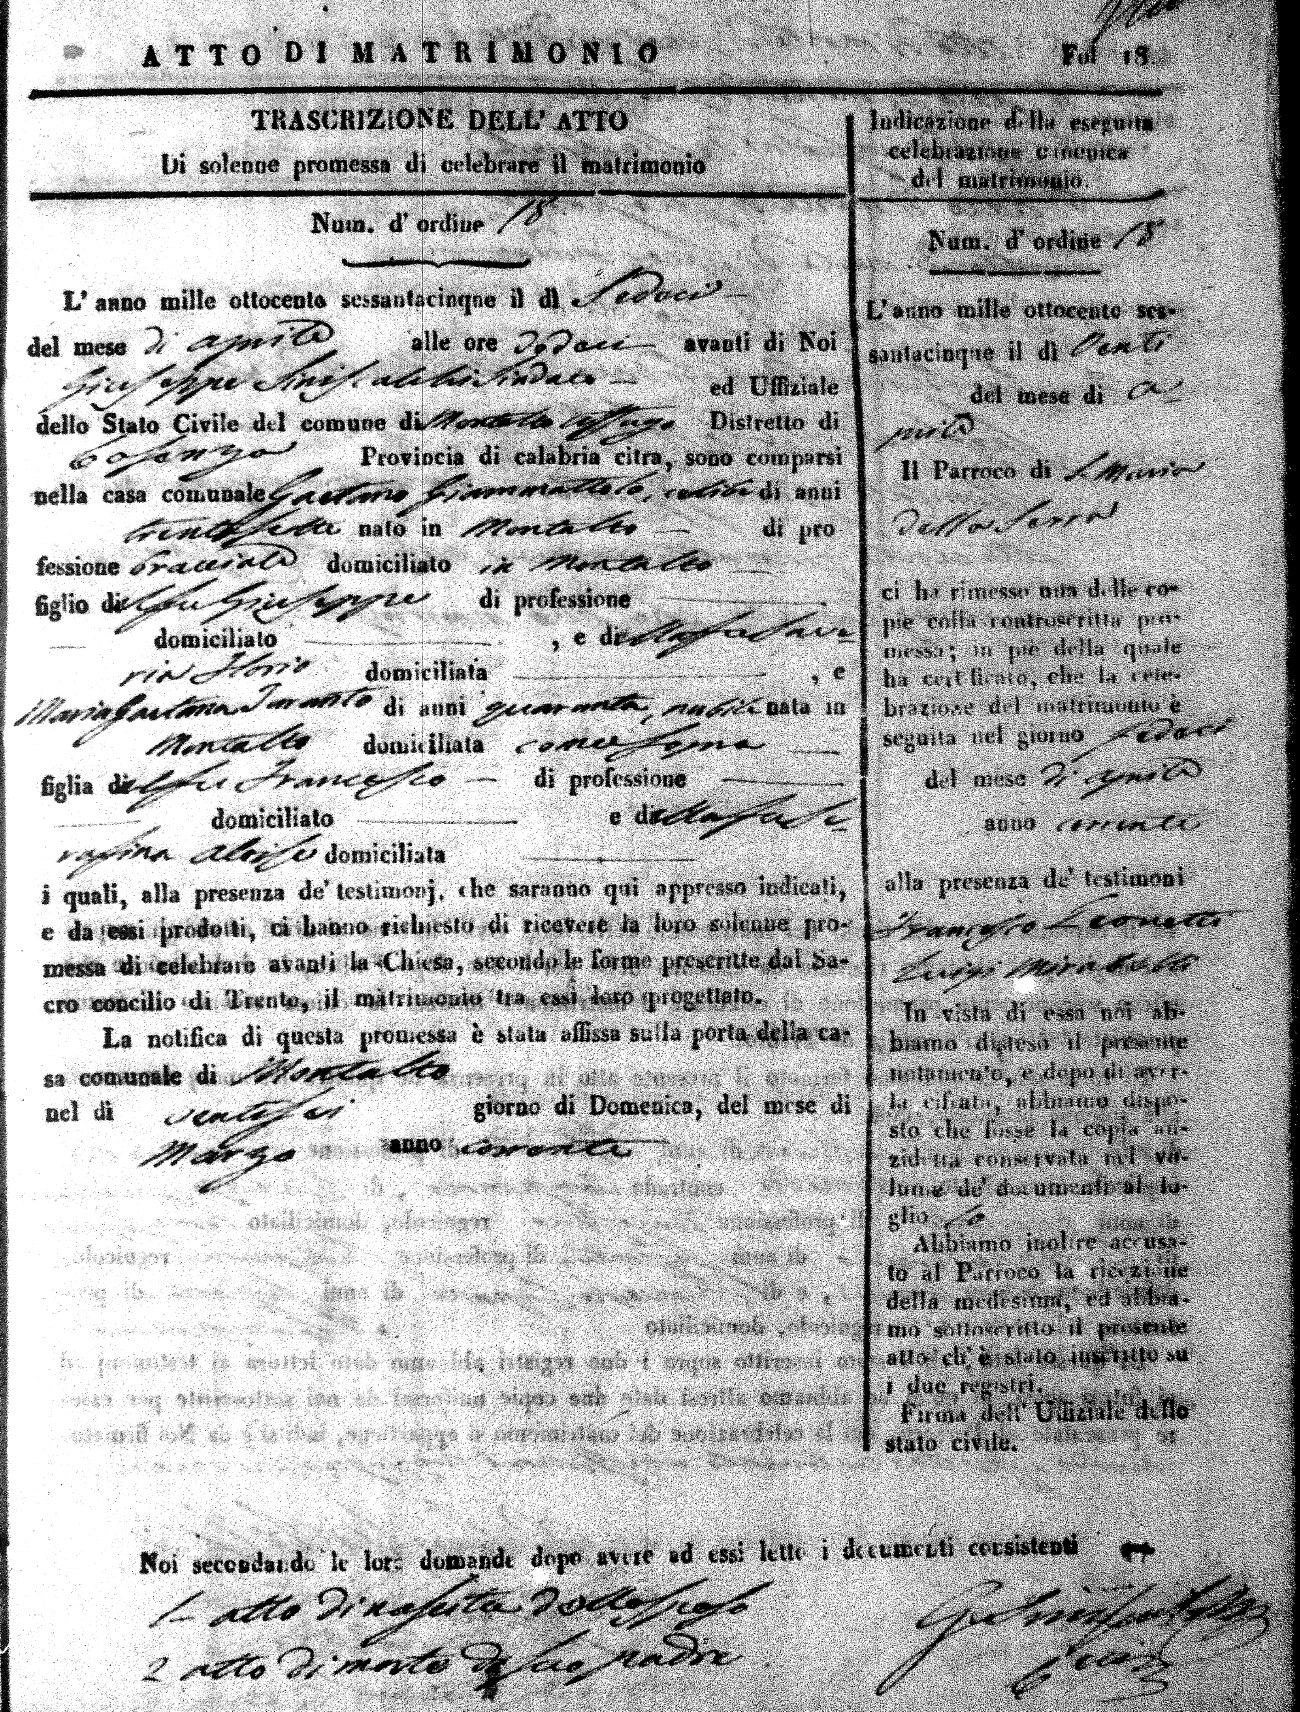 ATTO DI MATRIMONIO
Fol 18.
TRASCRIZIONE DELL' ATTO
Di solenne promessa di celebrare il matrimonio
Num. d' ordine 18
L' anno mille ottocento sessantacinque il dì Sedeci
del mese di aprile alle ore dodeci avanti di Noi
Giuseppe Siniscalchi Sindaco ed Uffiziale
dello Stato Civile del comune di Montalto Uffugo Distretto di
Cosenza Provincia di calabria citra, sono comparsi
nella casa comunale Gaetano Giammattelo, celibe di anni
trentasette nato in Montalto di pro
fessione bracciale domiciliato in Montalto
figlio del fu Giuseppe di professione
domiciliato , e della fu Save
ria Iorio domiciliata , e
Maria Gaetana Taranto di anni quaranta, nubile nata in
Montalto domiciliata come sopra
figlia del fu Francesco di professione
domiciliato e della fu Se
rafina Aloise domiciliata
i quali, alla presenza de' testimonj, che saranno qui appresso indicati,
e da essi prodotti, ci hanno richiesto di ricevere la loro solenne pro-
messa di celebrare avanti la Chiesa, secondo le forme prescritte dal Sa-
cro concilio di Trento, il matrimonio tra essi loro progettato.
La notifica di questa promessa è stata affissa sulla porta della ca-
sa comunale di Montalto
nel dì ventisei giorno di Domenica, del mese di
Marzo anno corrente
Indicazione della eseguita
celebrazione canonica
del matrimonio.
Num. d' ordine 18
L' anno mille ottocento ses-
santacinque il dì Venti
del mese di a
prile
Il Parroco di S. Maria
della Serra
ci ha rimesso una delle co-
pie colla controscritta pro-
messa; in piè della quale
ha certificato, che la cele-
brazione del matrimonio è
seguita nel giorno sedeci
del mese di aprile
anno corrente
alla presenza de' testimoni
Francesco Leonetti
Luigi Mirabelli
In vista di essa noi ab-
biamo disteso il presente
notamento, e dopo di aver-
la cifrata, abbiamo dispo-
sto che fosse la copia an-
zidetta conservata nel vo-
lume de' documenti al fo-
glio
Abbiamo inoltre accusa-
to al Parroco la ricezione
della medesima, ed abbia-
mo sottoscritto il presente
atto ch' è stato inscritto su
i due registri.
Firma dell' Uffiziale dello
stato civile.
Noi secondando le loro domande dopo avere ad essi letto i documenti consistenti
1 atto di nascita dello sposo
2 atto di morte di suo padre